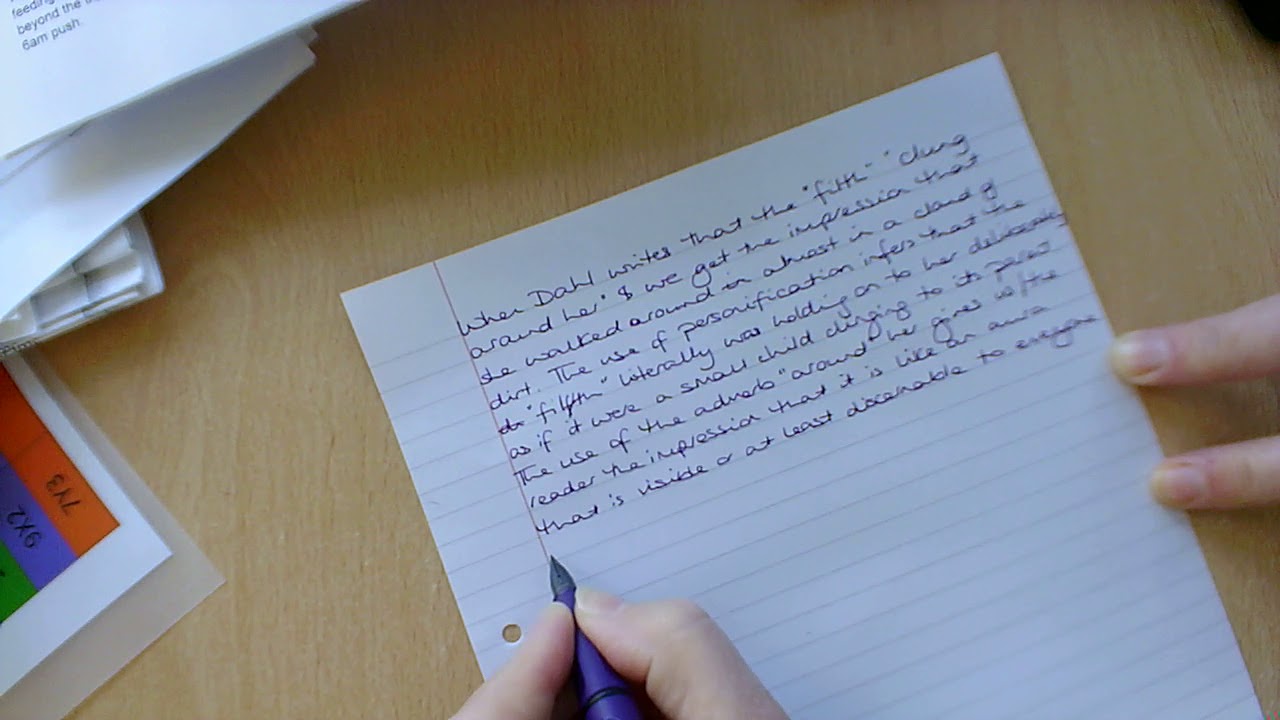 feeding
beyond the
6am push.
When Dahl writes that the "filth" "clung
around her" & we get the impression that
she walked around in almost in a cloud of
dirt. The use of personification infers that the
"filfth" literally was holding on to her deliberately
as if it were a small child clinging to its parent.
The use of the adverb "around" her gives us/the
reader the impression that it is like an aura
that is visible or at least discernable to everyone
7Y3
9X2